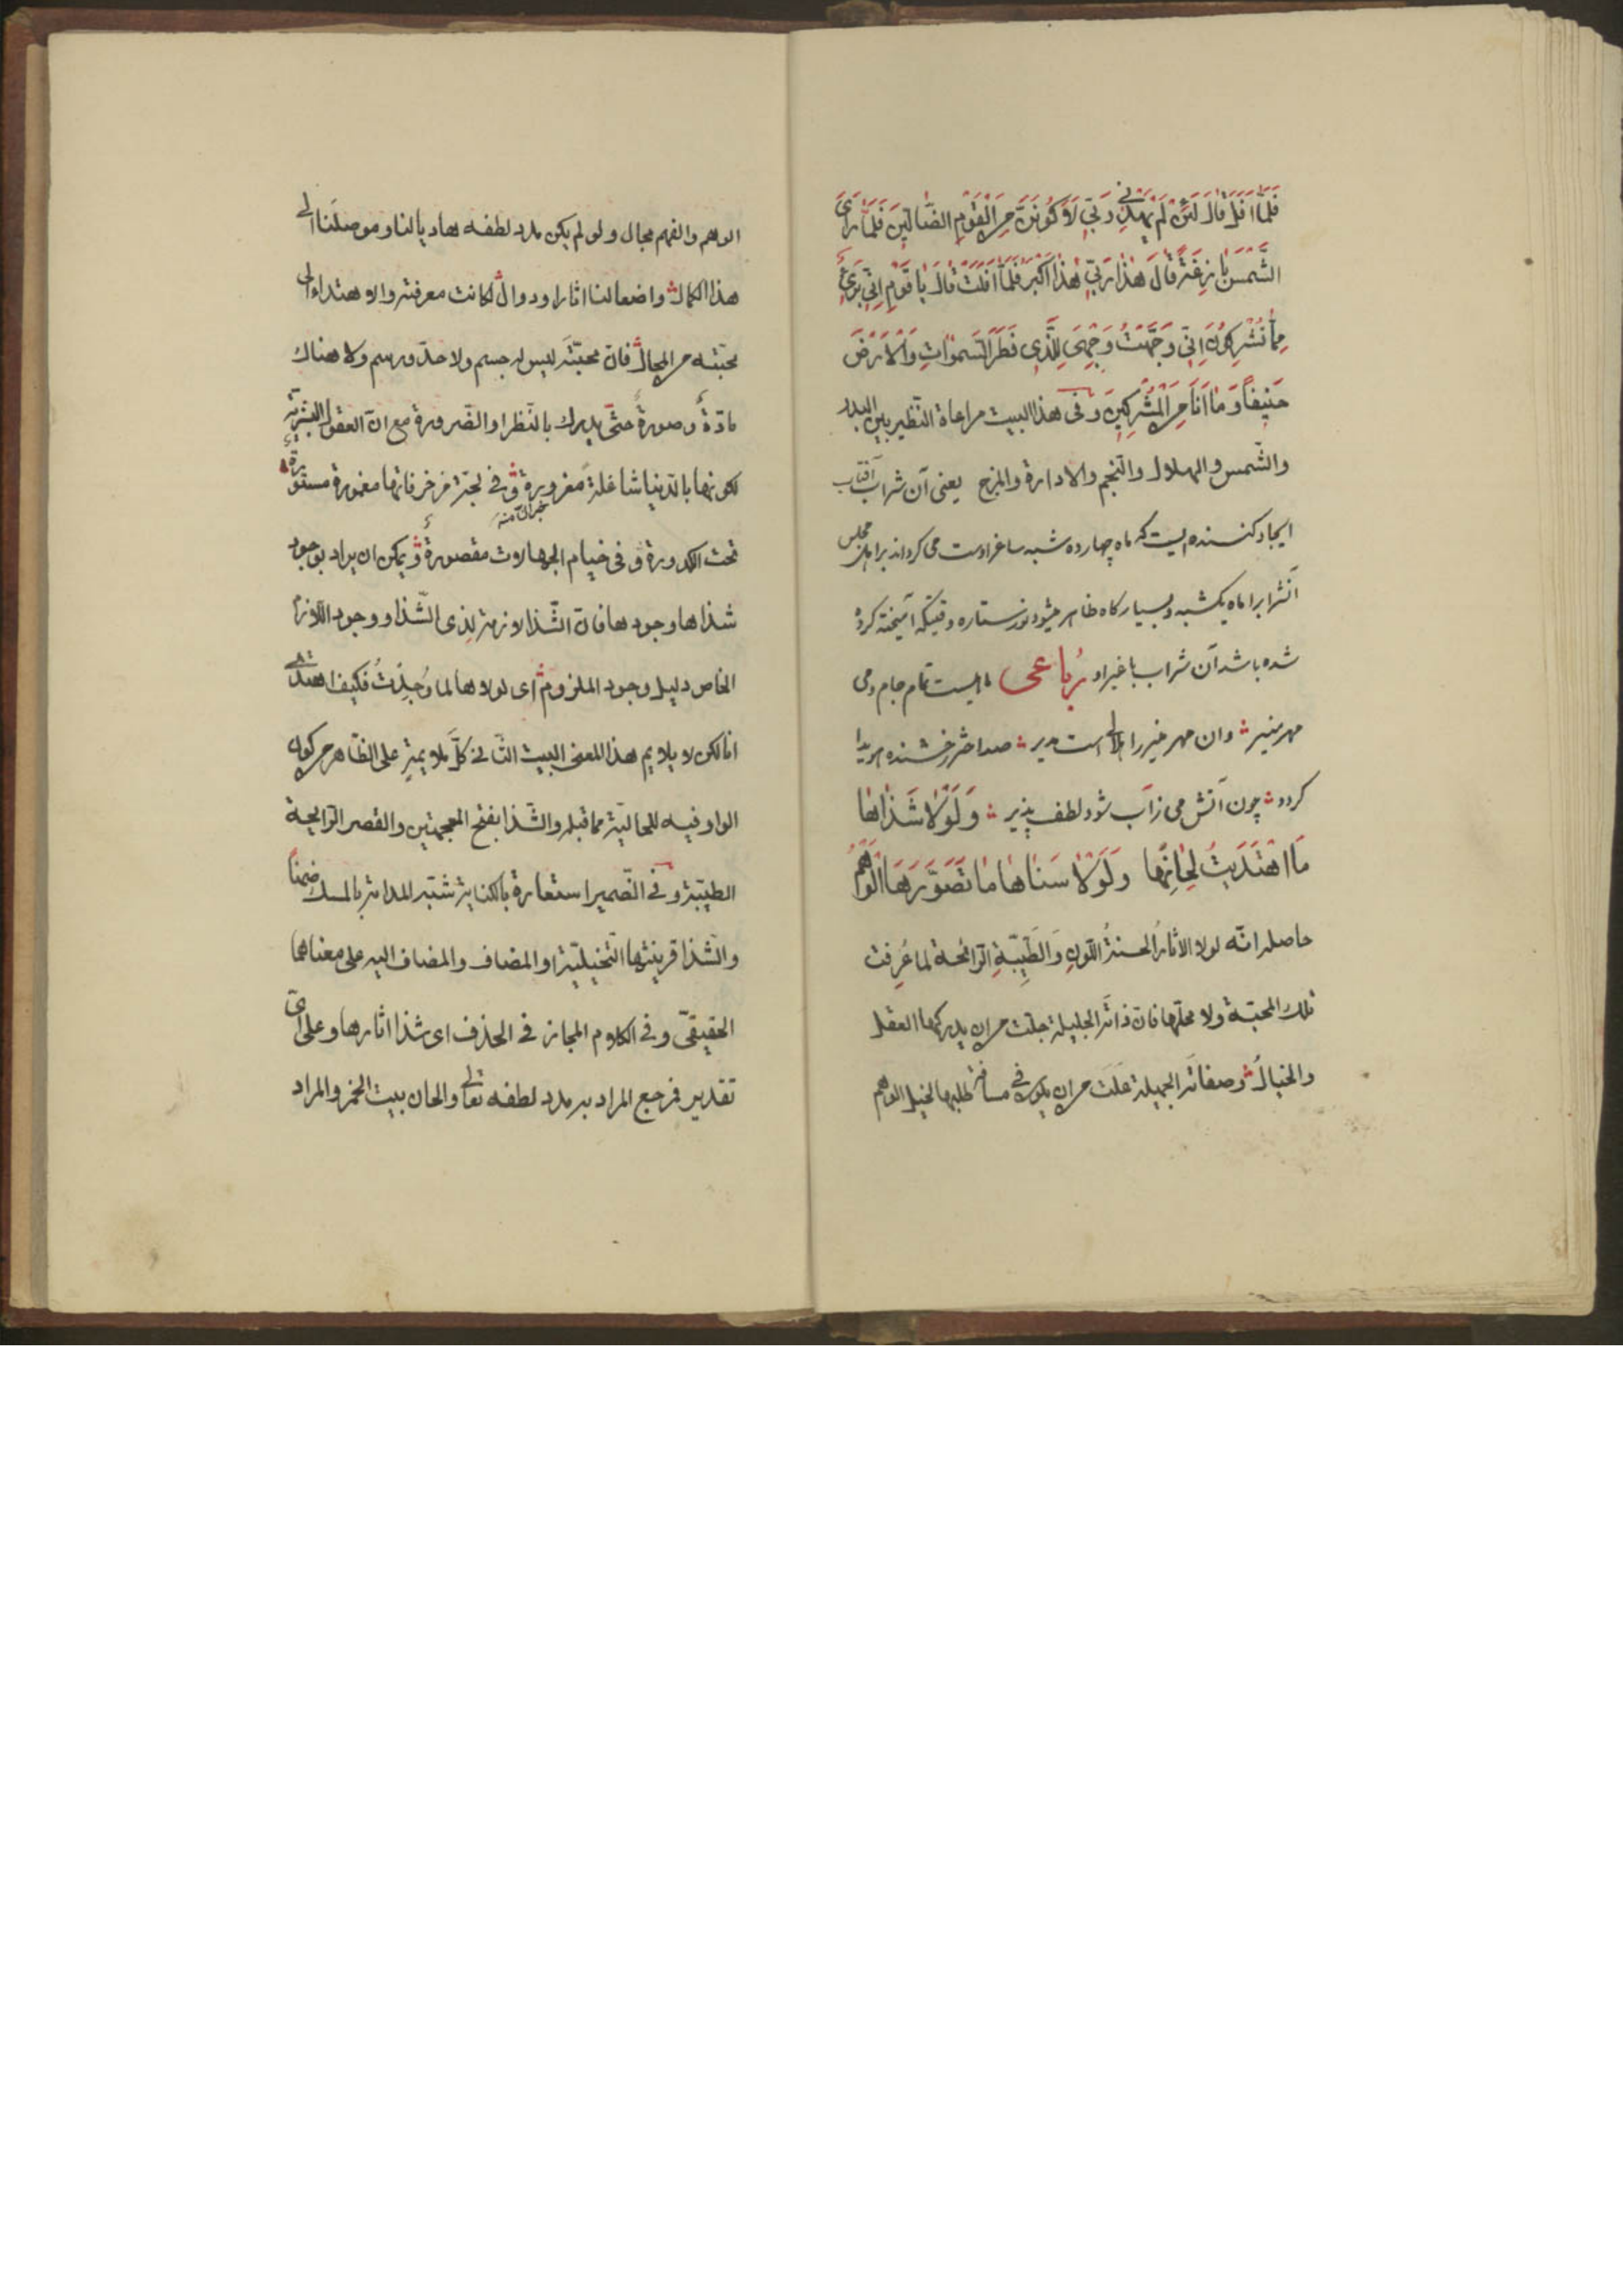 فَلَمَّا اَفَلَ قَالَ لَئِنْ لَمْ يَهْدِنِى رَبِّى لَاَكُونَنَّ مِنَ الْقَوْمِ الضَّالِّينَ فَلَمَّا رَاَى
الشَّمْسَ بَازِغَةً قَالَ هٰذَا رَبِّى هٰذَا اَكْبَرُ فَلَمَّا اَفَلَتْ قَالَ يَا قَوْمِ اِنِّى بَرِىءٌ
مِمَّا تُشْرِكُونَ اِنِّى وَجَّهْتُ وَجْهِىَ لِلَّذِى فَطَرَ السَّمٰوَاتِ وَالْاَرْضَ
حَنِيفًا وَمَا اَنَا مِنَ الْمُشْرِكِينَ وفى هذا البيت مراعاة النّظير بين البدر
والشّمس والهلال والنّجم والادارة والمزج يعنى آن شراب آفتاب
ايجاد كننده ايست كه ماه چهارده شبه ساغر اوست مى كرداند براهل مجلس
آنشرابرا ماه يكشبه وبسيار كاه ظاهر ميشود نور ستاره وقتيكه آميخته كرده
شده باشد آن شراب با غير او رُباعى ماهيست تمام جام ومى
مهر منير وان مهر منير را هلالى است مدير صد اختر رخشنده هويدا
كردد چون آتش مى ز آب شود لطف پذير وَلَوْلَا شَذَاهَا
مَا اهْتَدَيْتُ لِحَانِهَا وَلَوْلَا سَنَاهَا مَا تَصَوَّرَهَا الْوَهْمُ
حاصله انّه لولا الاثارُ الحسنةُ اللّونِ وَالطَّيِّبَةِ الرّائحة لما عُرِفت
تلك المحبّة ولا محلّها فان ذاتَه الجليلة جلّت من ان يدركها العقل
والخيالُ وصفاتَه الجميلة عَلَت من ان يكون فى مسافة طلبها لخيل الوهم
الوهم والفهم مجال ولو لم يكن مدد لطفه هاديا لنا وموصلَنا الى
هذا الكمال واضعا لنا اثارا ودوال لكانت معرفته والاهتداء الى
محبّته من المحال فانّ محبّتَه ليس له جسم ولا حدّ ورسم ولا هناك
مادّةٌ وصورةٌ حتّى يدرك بالنّظر او الضّرورة مع انّ العقول البشريّة
لكونها بالدّنيا شاغلة مغرورة وفى لجّة مزخرفاتها مغمورة مستورة
تحت الكدورة وفى خيام الجهالات مقصورة ويمكن ان يراد بوجود
شذاها وجودها فان الشّذا لازمة لذى الشّذا ووجود اللّازم
الخاص دليل وجود الملزوم اى لولاها لما وُجِدْتُ فكيف اهتدى
انا لكن لا يلايم هذا المعنى البيت الثّانى كلّ ملايمة على الظّاهر من كون
الواو فيه للحاليّة مما قبله والشّذا بفتح المعجمتين والقصر الرّائحة
الطيّبة وفى الضّمير استعارة بالكناية شبّه المدامة بالمسك ضمنًا
والشّذا قرينتها التّخييليّة او المضاف والمضاف اليه على معناهما
الحقيقىّ وفى الكلام المجاز فى الحذف اى شذا اثارها وعلى اىّ
تقدير فمرجع المراد به مدد لطفه تعالى والحان بيت الخمر والمراد